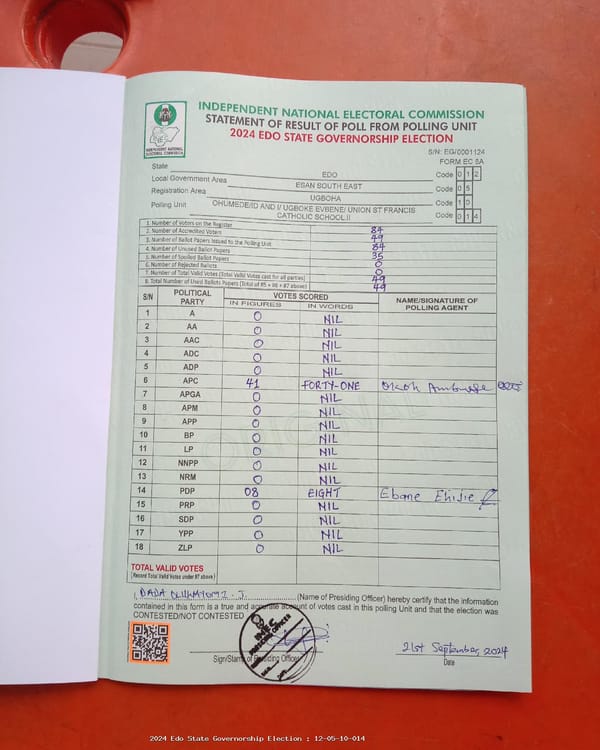 INDEPENDENT NATIONAL ELECTORAL COMMISSION
STATEMENT OF RESULT OF POLL FROM POLLING UNIT
2024 EDO STATE GOVERNORSHIP ELECTION
INDEPENDENT NATIONAL ELECTORAL COMMISSION
S/N: EG/0001124
FORM EC 8A
State EDO Code 0 1 2
Local Government Area ESAN SOUTH EAST Code 0 5
Registration Area UGBOHA Code 1 0
Polling Unit OHUMEDE/ID AND I/ UGBOKE EVBENE/ UNION ST FRANCIS CATHOLIC SCHOOL II Code 0 1 4
1. Number of Voters on the Register 84
2. Number of Accredited Voters 49
3. Number of Ballot Papers Issued to the Polling Unit 84
4. Number of Unused Ballot Papers 35
5. Number of Spoiled Ballot Papers 0
6. Number of Rejected Ballots 0
7. Number of Total Valid Votes (Total Valid Votes cast for all parties) 49
8. Total Number of Used Ballots Papers (Total of #5 + #6 + #7 above) 49
S/N POLITICAL PARTY VOTES SCORED NAME/SIGNATURE OF POLLING AGENT
IN FIGURES IN WORDS
1 A 0 NIL
2 AA 0 NIL
3 AAC 0 NIL
4 ADC 0 NIL
5 ADP 0 NIL
6 APC 41 FORTY-ONE Okoh Ambrose
7 APGA 0 NIL
8 APM 0 NIL
9 APP 0 NIL
10 BP 0 NIL
11 LP 0 NIL
12 NNPP 0 NIL
13 NRM 0 NIL
14 PDP 08 EIGHT Ebane Ehisie
15 PRP 0 NIL
16 SDP 0 NIL
17 YPP 0 NIL
18 ZLP 0 NIL
ORIGINAL
TOTAL VALID VOTES
(Record Total Valid Votes under #7 above)
I, DADA OLUKAYOMI . J. (Name of Presiding Officer) hereby certify that the information
contained in this form is a true and accurate account of votes cast in this polling Unit and that the election was
CONTESTED/NOT CONTESTED
INEC
Sign/Stamp of Presiding Officer
21st September, 2024
Date
2024 Edo State Governorship Election : 12-05-10-014